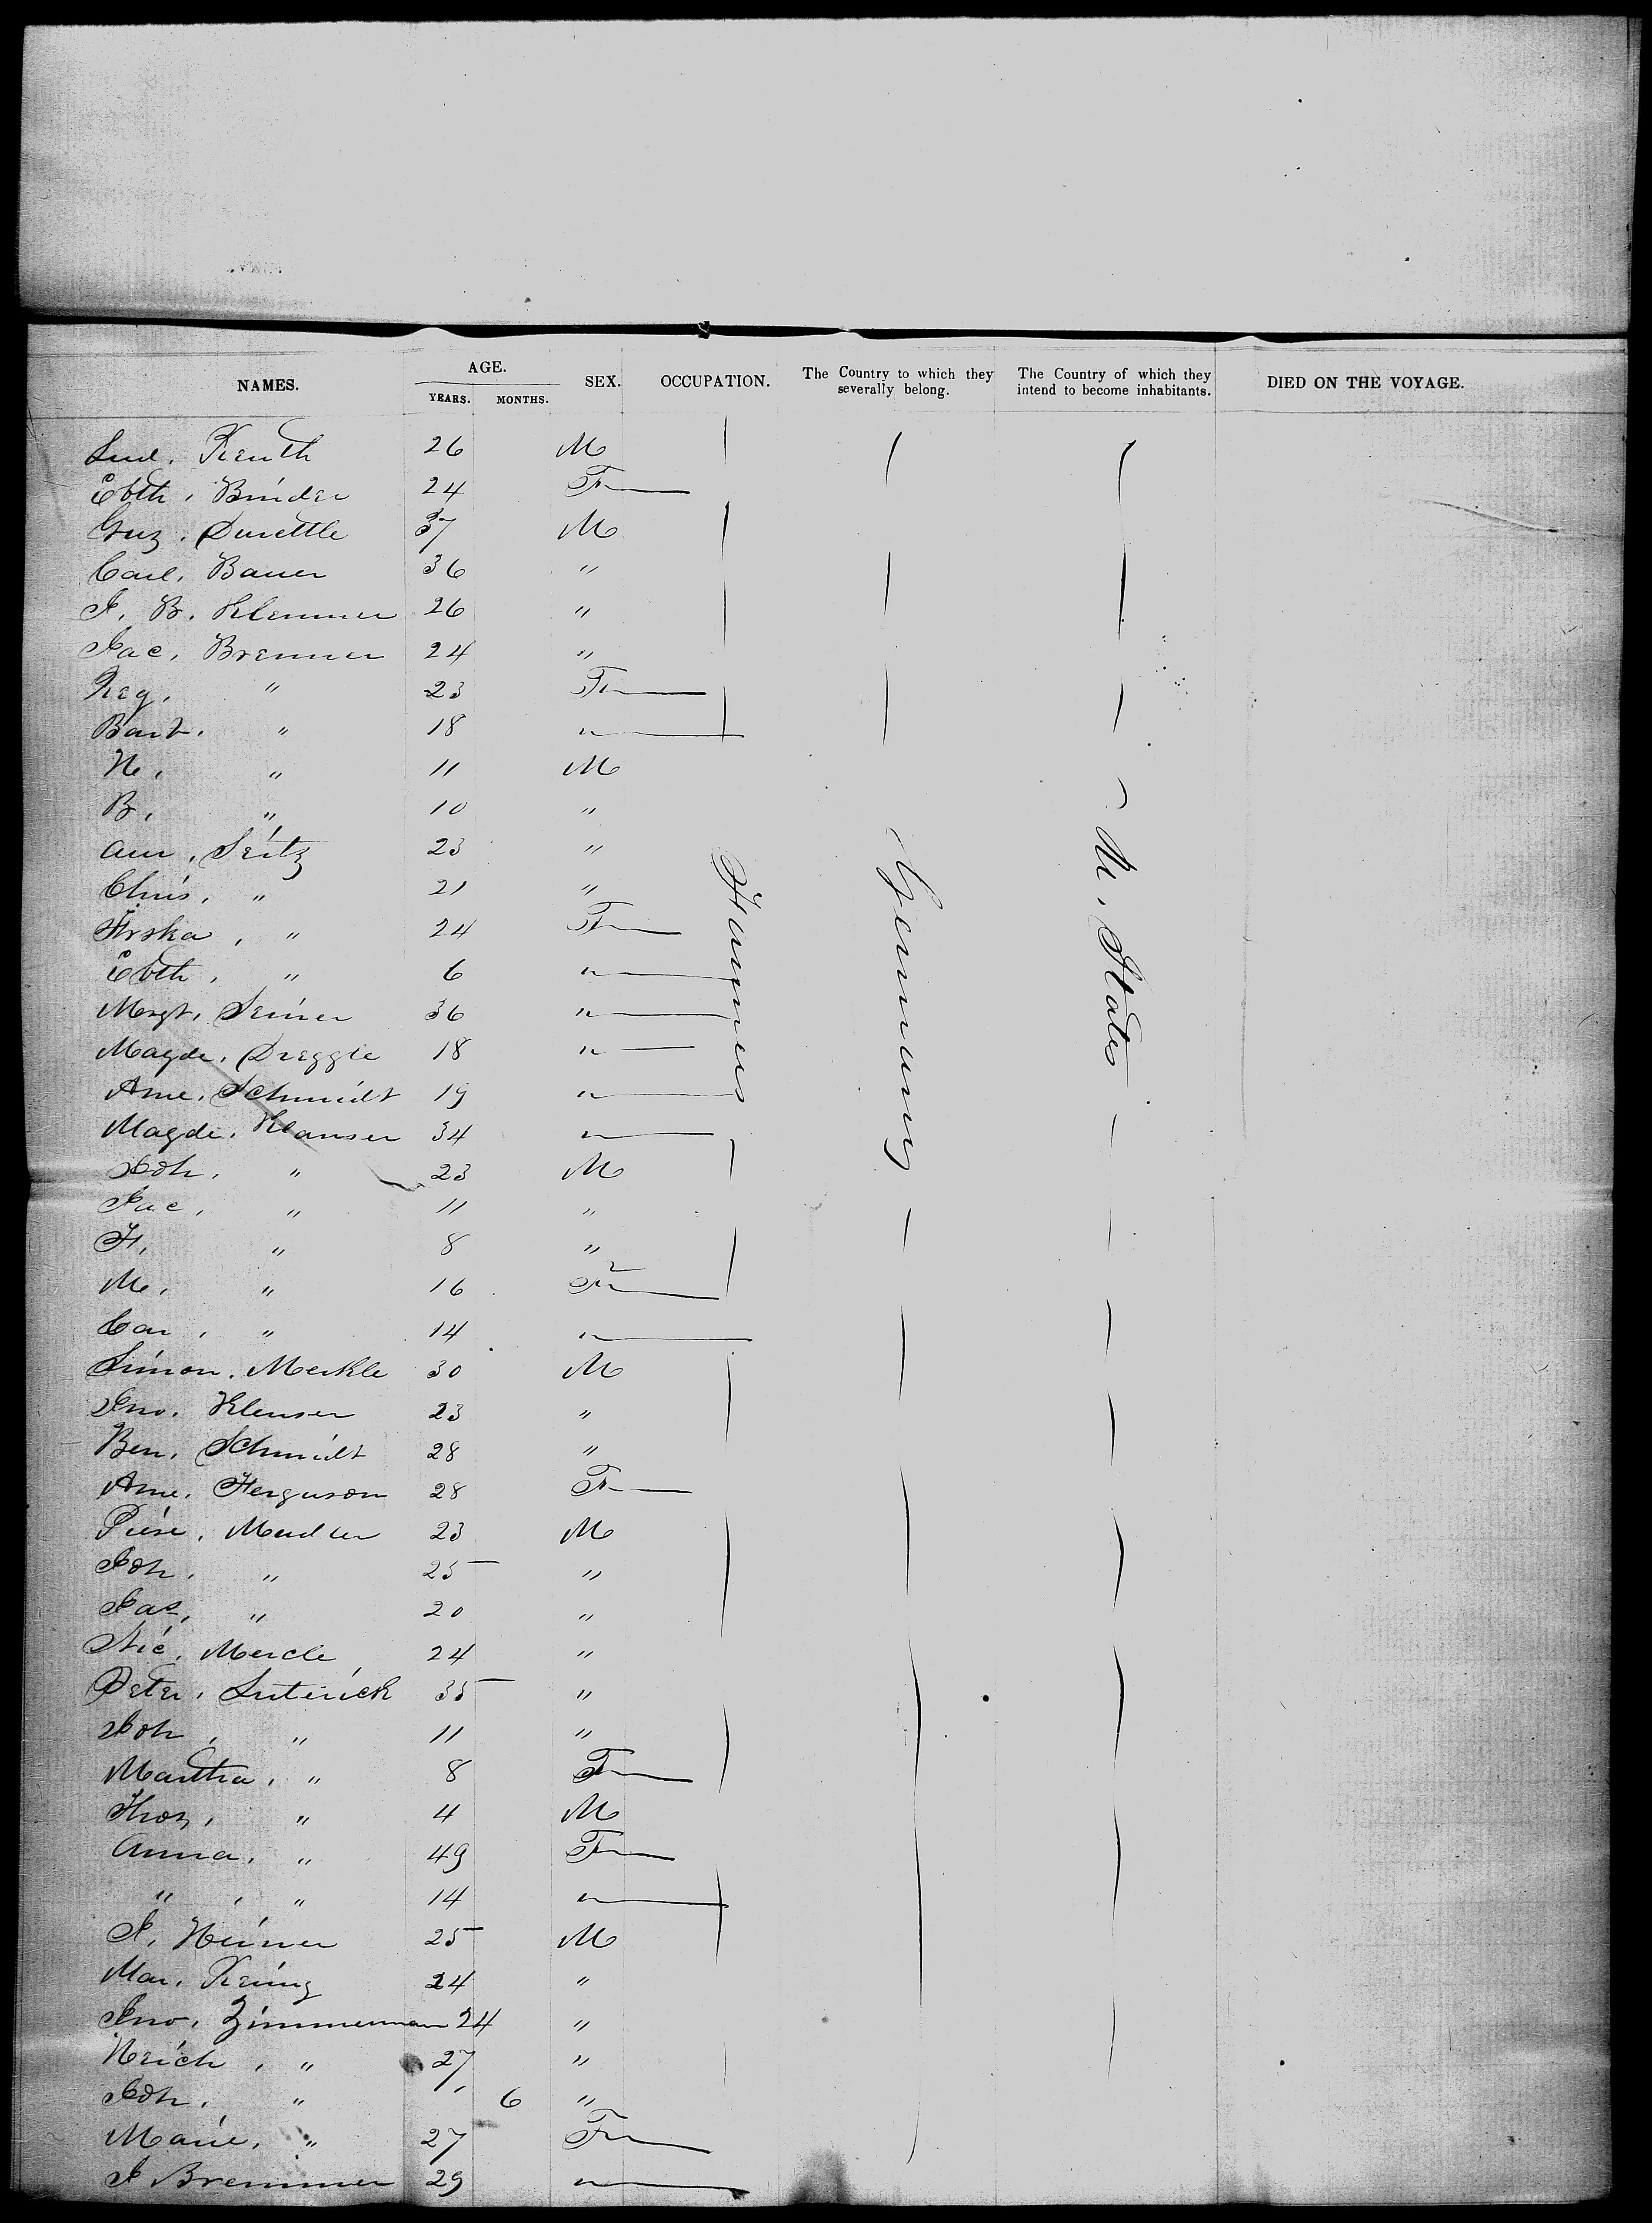 NAMES. AGE. YEARS. MONTHS. SEX. OCCUPATION. The Country to which they severally belong. The Country of which they intend to become inhabitants. DIED ON THE VOYAGE.
Lud. Reuth 26 M
Ebth. Binder 24 F
Durettle 37 M
Carl. Bauer 36 "
J. B. Klemmer 26 "
Jac. Brenner 24 "
Reg. " 23 F
Barb. " 18 "
H. " 11 M
B. " 10 "
Seitz 23 "
Chris. " 21 "
Frska, " 24 F
Ebth. " 6 "
Margt. Seiner 36 "
Magde. Dreggle 18 "
Ame. Schmidt 19 "
Magde. Klauser 34 "
Joh. " 23 M
Jac. " 11 "
F. " 8 "
M. " 16 F
Car. " 14 "
Simon. Merkle 30 M
Jno. Klenser 23 "
Ben. Schmidt 28 "
Ame. Ferguson 28 F
23 M
Joh. " 25 "
Jac. " 20 "
Nic. Mercle 24 "
Peter. Luterick 35 "
Joh. " 11 "
Martha. " 8 F
Thos. " 4 M
Anna. " 49 F
" " 14 "
J. Heiner 25 M
Mar. Reinz 24 "
Jno. Zimmerman 24 "
Heich. " 27 "
Joh. " " 6 "
Marie. " 27 F
J Bremmer 29 "
Farmers
Germany
U. States